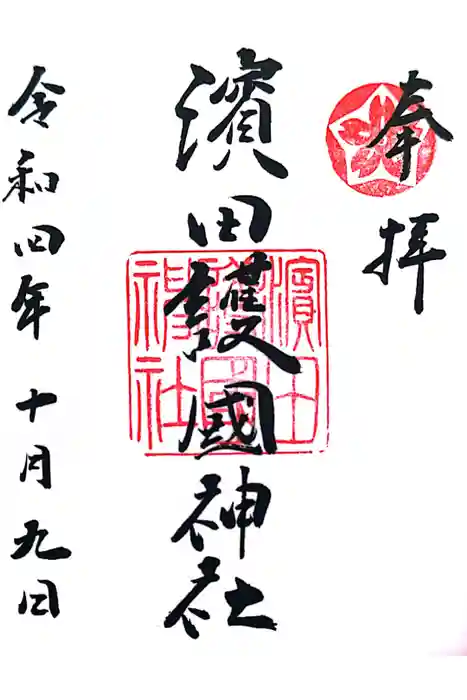 奉拝
濱田護國神社
濱田護國神社
令和四年 十月九日